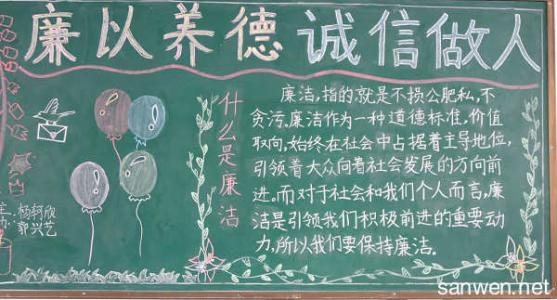 廉以养德 诚信做人
什么是廉洁
廉洁,指的就是不损公肥私,不
贪污.廉洁作为一种道德标准.价值
取向,始终在社会中占据着主导地位,
引领着大众向着社会发展的方向前
进.而对于社会和我们个人而言,廉
洁是引领我们积极前进的重要动
力,所以我们要保持廉洁.
杨轲欣
郭兴艺
sanwen.net